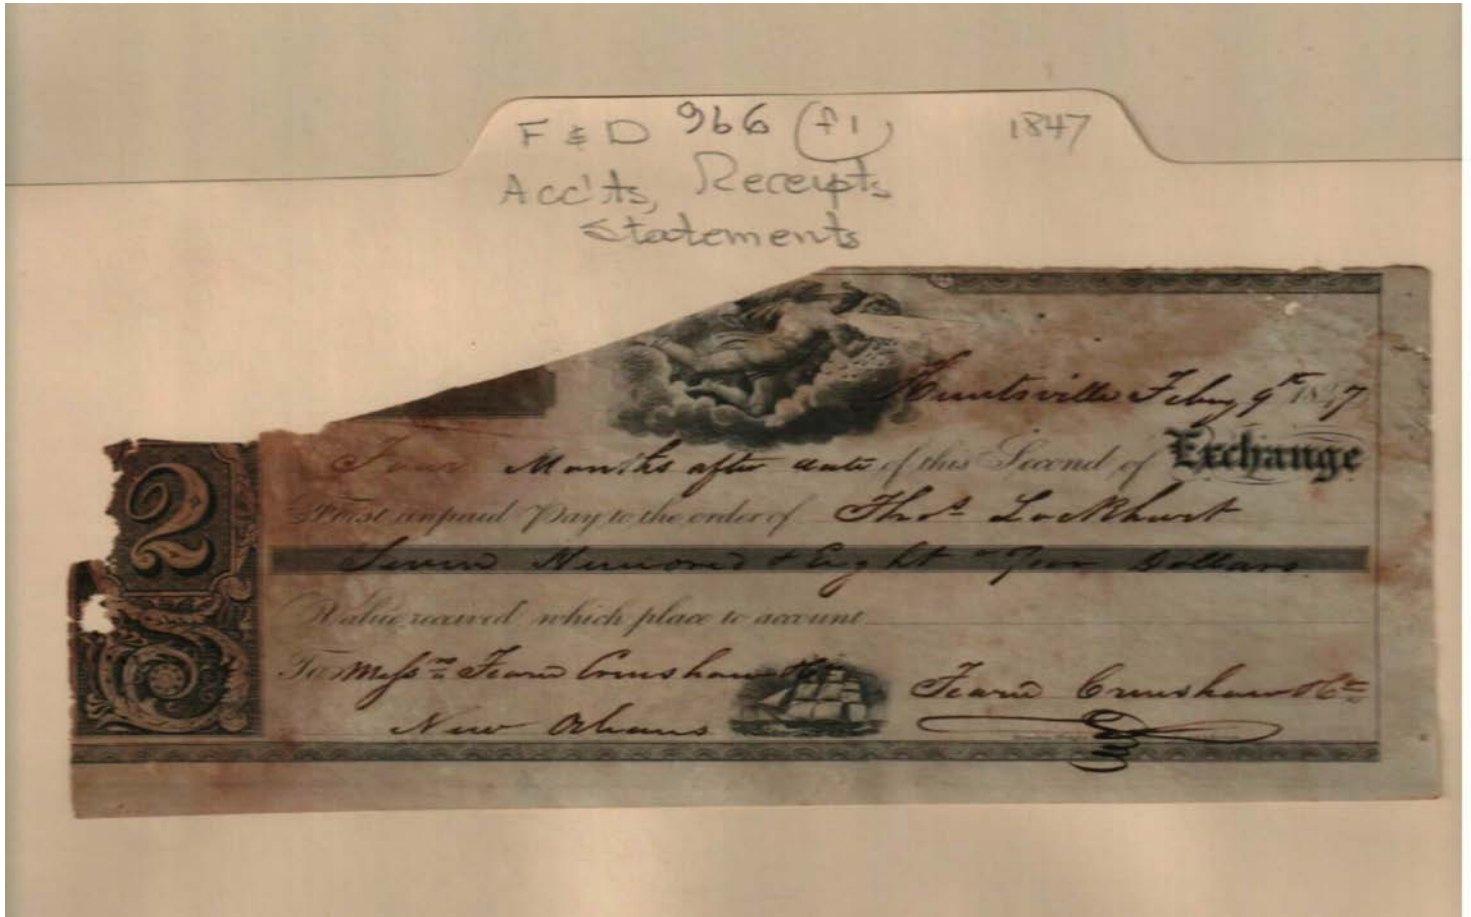 F & D 966 (f1) 1847
Acc'ts, Receipts
Statements
Huntsville Feby 9th 1847
Four Months after date of this Second of Exchange
First unpaid Pay to the order of Thos Lockhart
Seven Hundred & Eight Dollars
Value received which place to account
To Messrs Fearn Crenshaw & Co
New Orleans
Fearn Crenshaw & Co
2